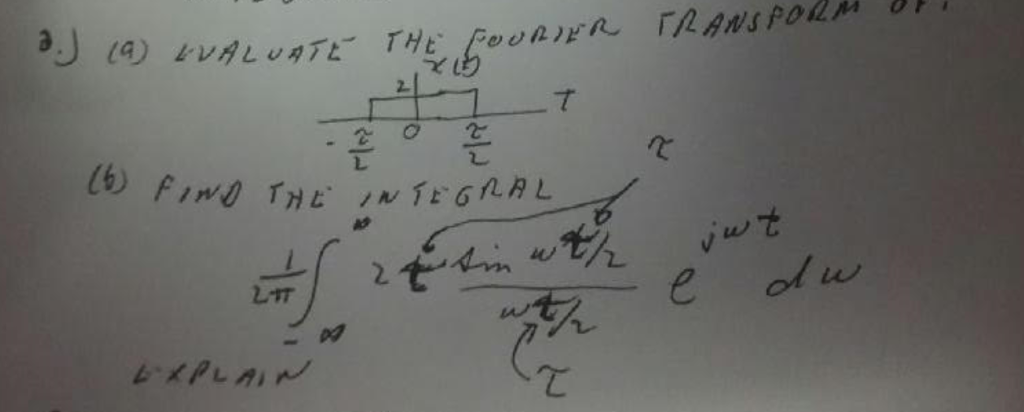 3.) (a) EVALUATE THE FOURIER TRANSFORM OF:
x(t)
2
T
-τ/2 0 τ/2
τ
(b) FIND THE INTEGRAL
1/2π ∫ ∞ -∞ 2 τ sin ωτ/2 / ωτ/2 e^jωt dω
EXPLAIN
τ